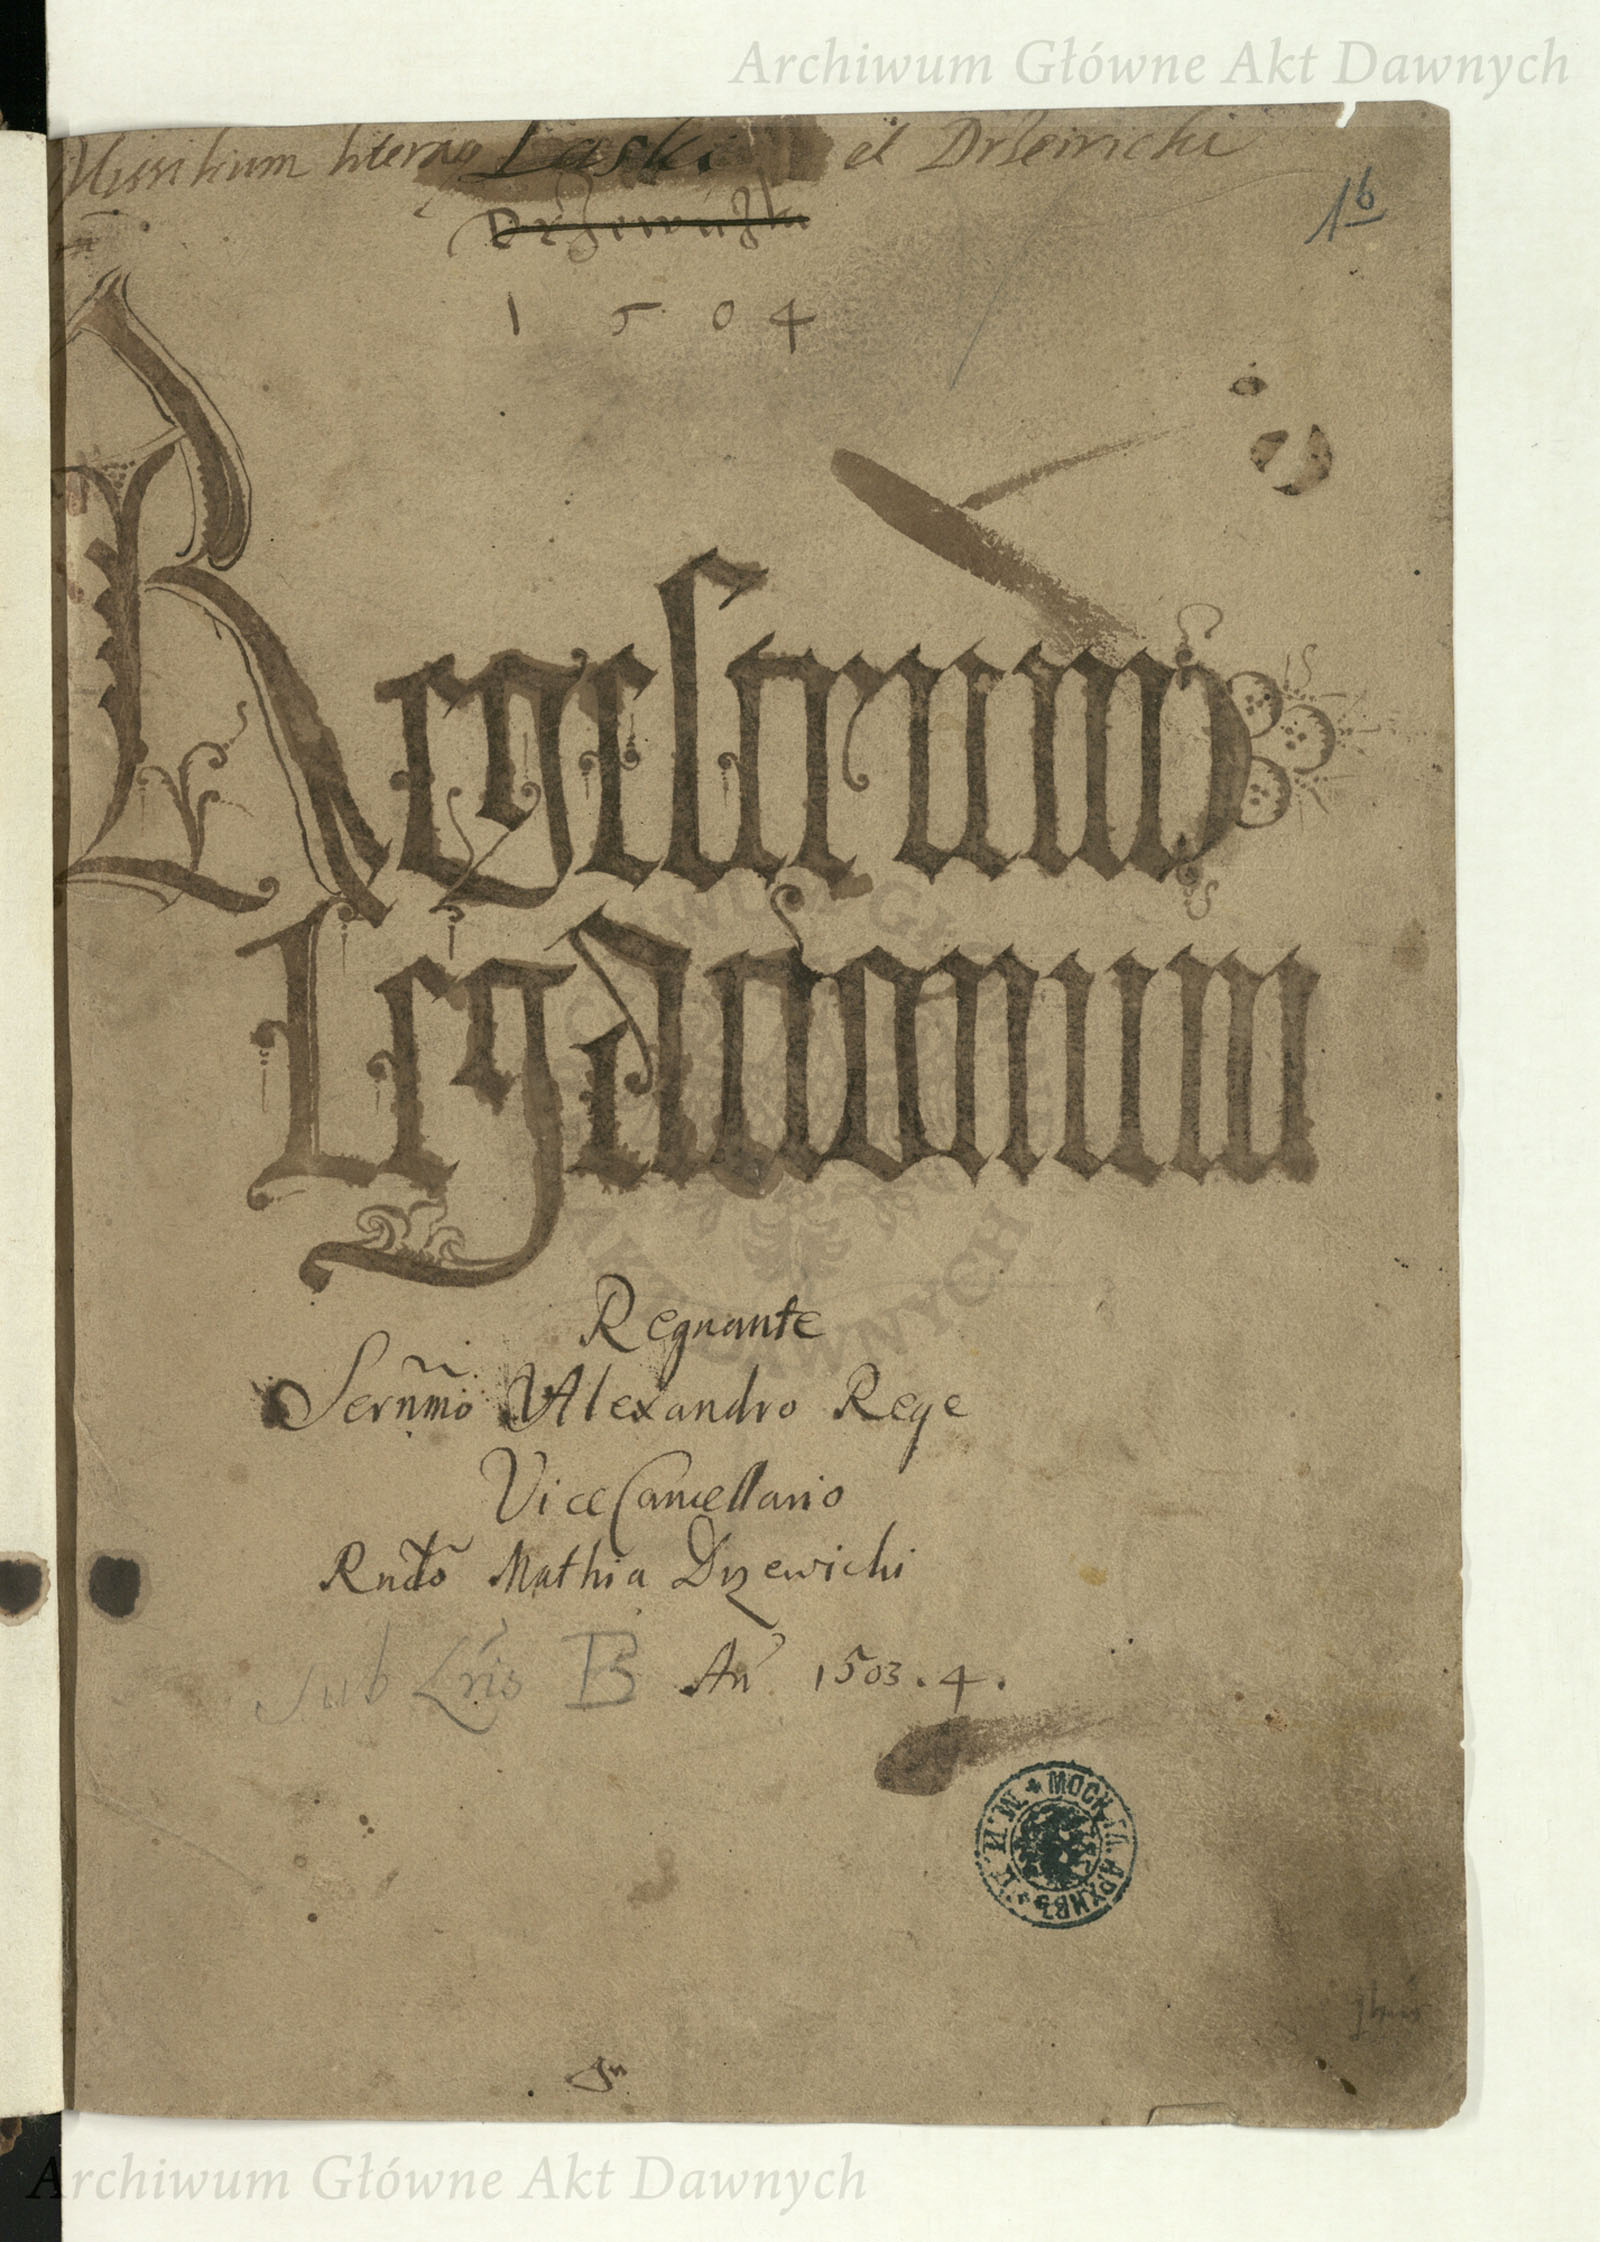 Archiwum Główne Akt Dawnych
Missilium literas Laski et Drzewichi
16
1504
Regestrum
Legationum
Regnante
Sernmo Alexandro Rege
ViceCancellario
Rndo Mathia Drzewichi
Sub Lris B An 1503.4.
МОСК. ГЛ. АРХИВЪ М.И.Д.
Archiwum Główne Akt Dawnych